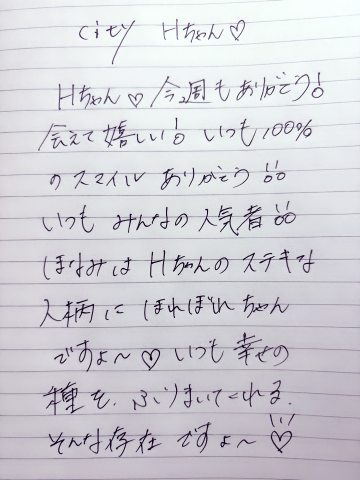 city Hちゃん♡
Hちゃん♡今週もありがとう!
会えて嬉しい! いつも100%
のスマイル ありがとう!!
いつも みんなの人気者!!
ほなみは Hちゃんのステキな
人柄に ほれぼれちゃん
ですよ〜♡ いつも幸せの
種を、ふりまいてくれる、
そんな存在 ですよ〜♡